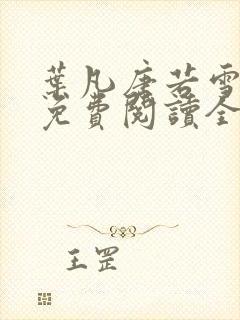 葉凡唐若雪
免費閱讀全
王罡